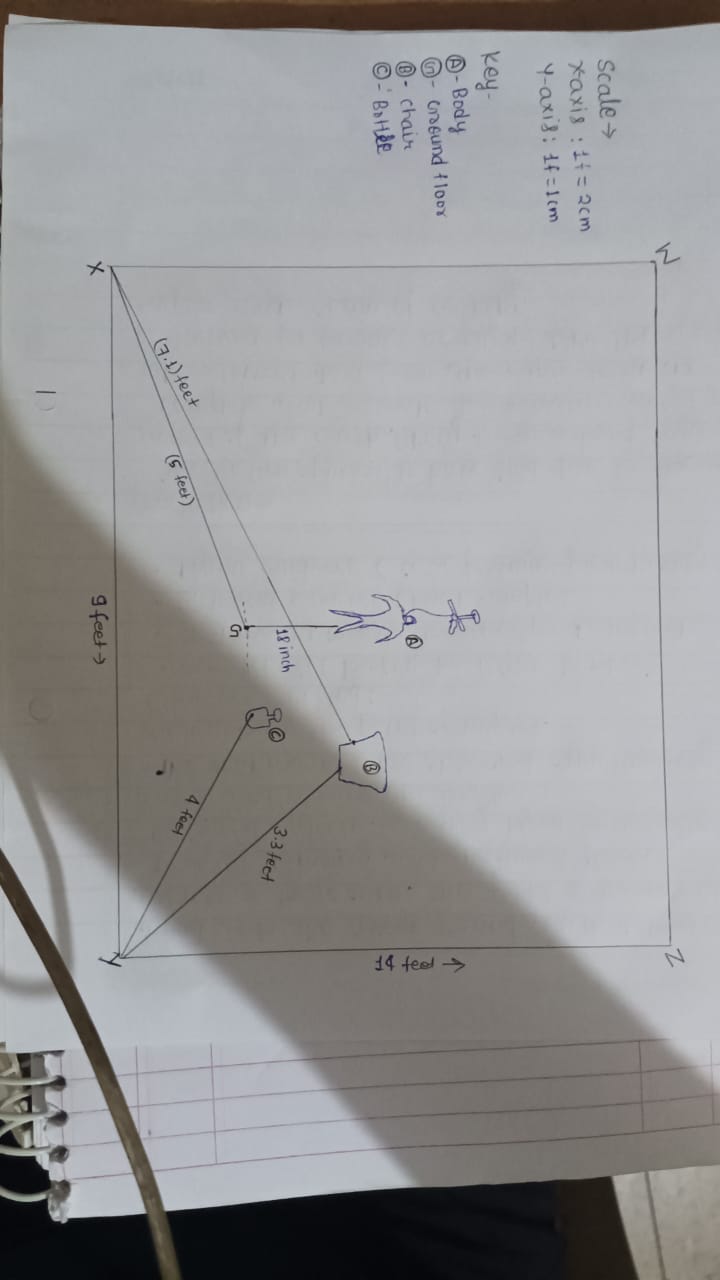 W
Z
Scale →
X-axis : 1f = 2cm
Y-axis: 1f = 1cm
Key-
Ⓐ - Body
Ⓖ - Ground floor
Ⓑ - chair
Ⓒ - Bottle
Ⓐ
Ⓑ
14 feet →
18 inch
Ⓒ
3.3 feet
G
(7.1) feet
(5 feet)
4 feet
X
9 feet →
Y